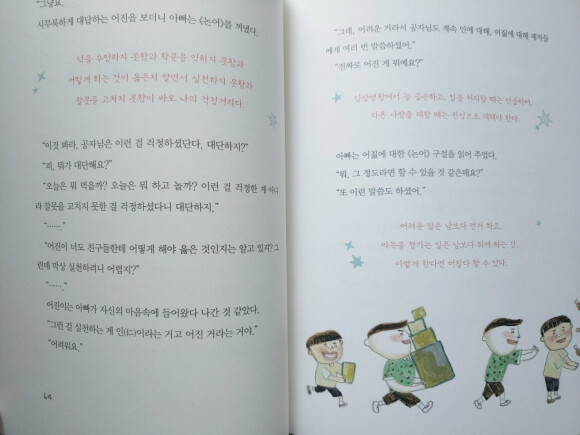 "그냥요."
시무룩하게 대답하는 어진을 보더니 아빠는 《논어》를 꺼냈다.
덕을 수양하지 못함과 학문을 익히지 못함과
어떻게 하는 것이 옳은지 알면서 실천하지 못함과
잘못을 고치지 못함이 바로 나의 걱정거리다.
"이것 봐라, 공자님은 이런 걸 걱정하셨단다. 대단하지?"
"피, 뭐가 대단해요?"
"오늘은 뭐 먹을까? 오늘은 뭐 하고 놀까? 이런 걸 걱정한 게 아니
라 잘못을 고치지 못한 걸 걱정하셨다니 대단하지."
"……."
"어진이 너도 친구들한테 어떻게 해야 옳은 것인지는 알고 있지? 그
런데 막상 실천하려니 어렵지?"
"……."
어진이는 아빠가 자신의 마음속에 들어왔다 나간 것 같았다.
"그런 걸 실천하는 게 인(仁)이라는 거고 어진 거라는 거야."
"어려워요."
64
"그래, 어려운 거라서 공자님도 계속 인에 대해, 어짊에 대해 제자들
에게 여러 번 말씀하셨어."
"진짜로 어진 게 뭐예요?"
일상생활에서 늘 공손하고, 일을 처리할 때는 신중하며,
다른 사람을 대할 때는 진심으로 대해야 한다.
아빠는 어짊에 대한 《논어》 구절을 읽어 주었다.
"뭐, 그 정도라면 할 수 있을 것 같은데요?"
"또 이런 말씀도 하셨어."
어려운 일은 남보다 먼저 하고,
이득을 챙기는 일은 남보다 뒤에 하는 것,
이렇게 한다면 어질다 할 수 있다.